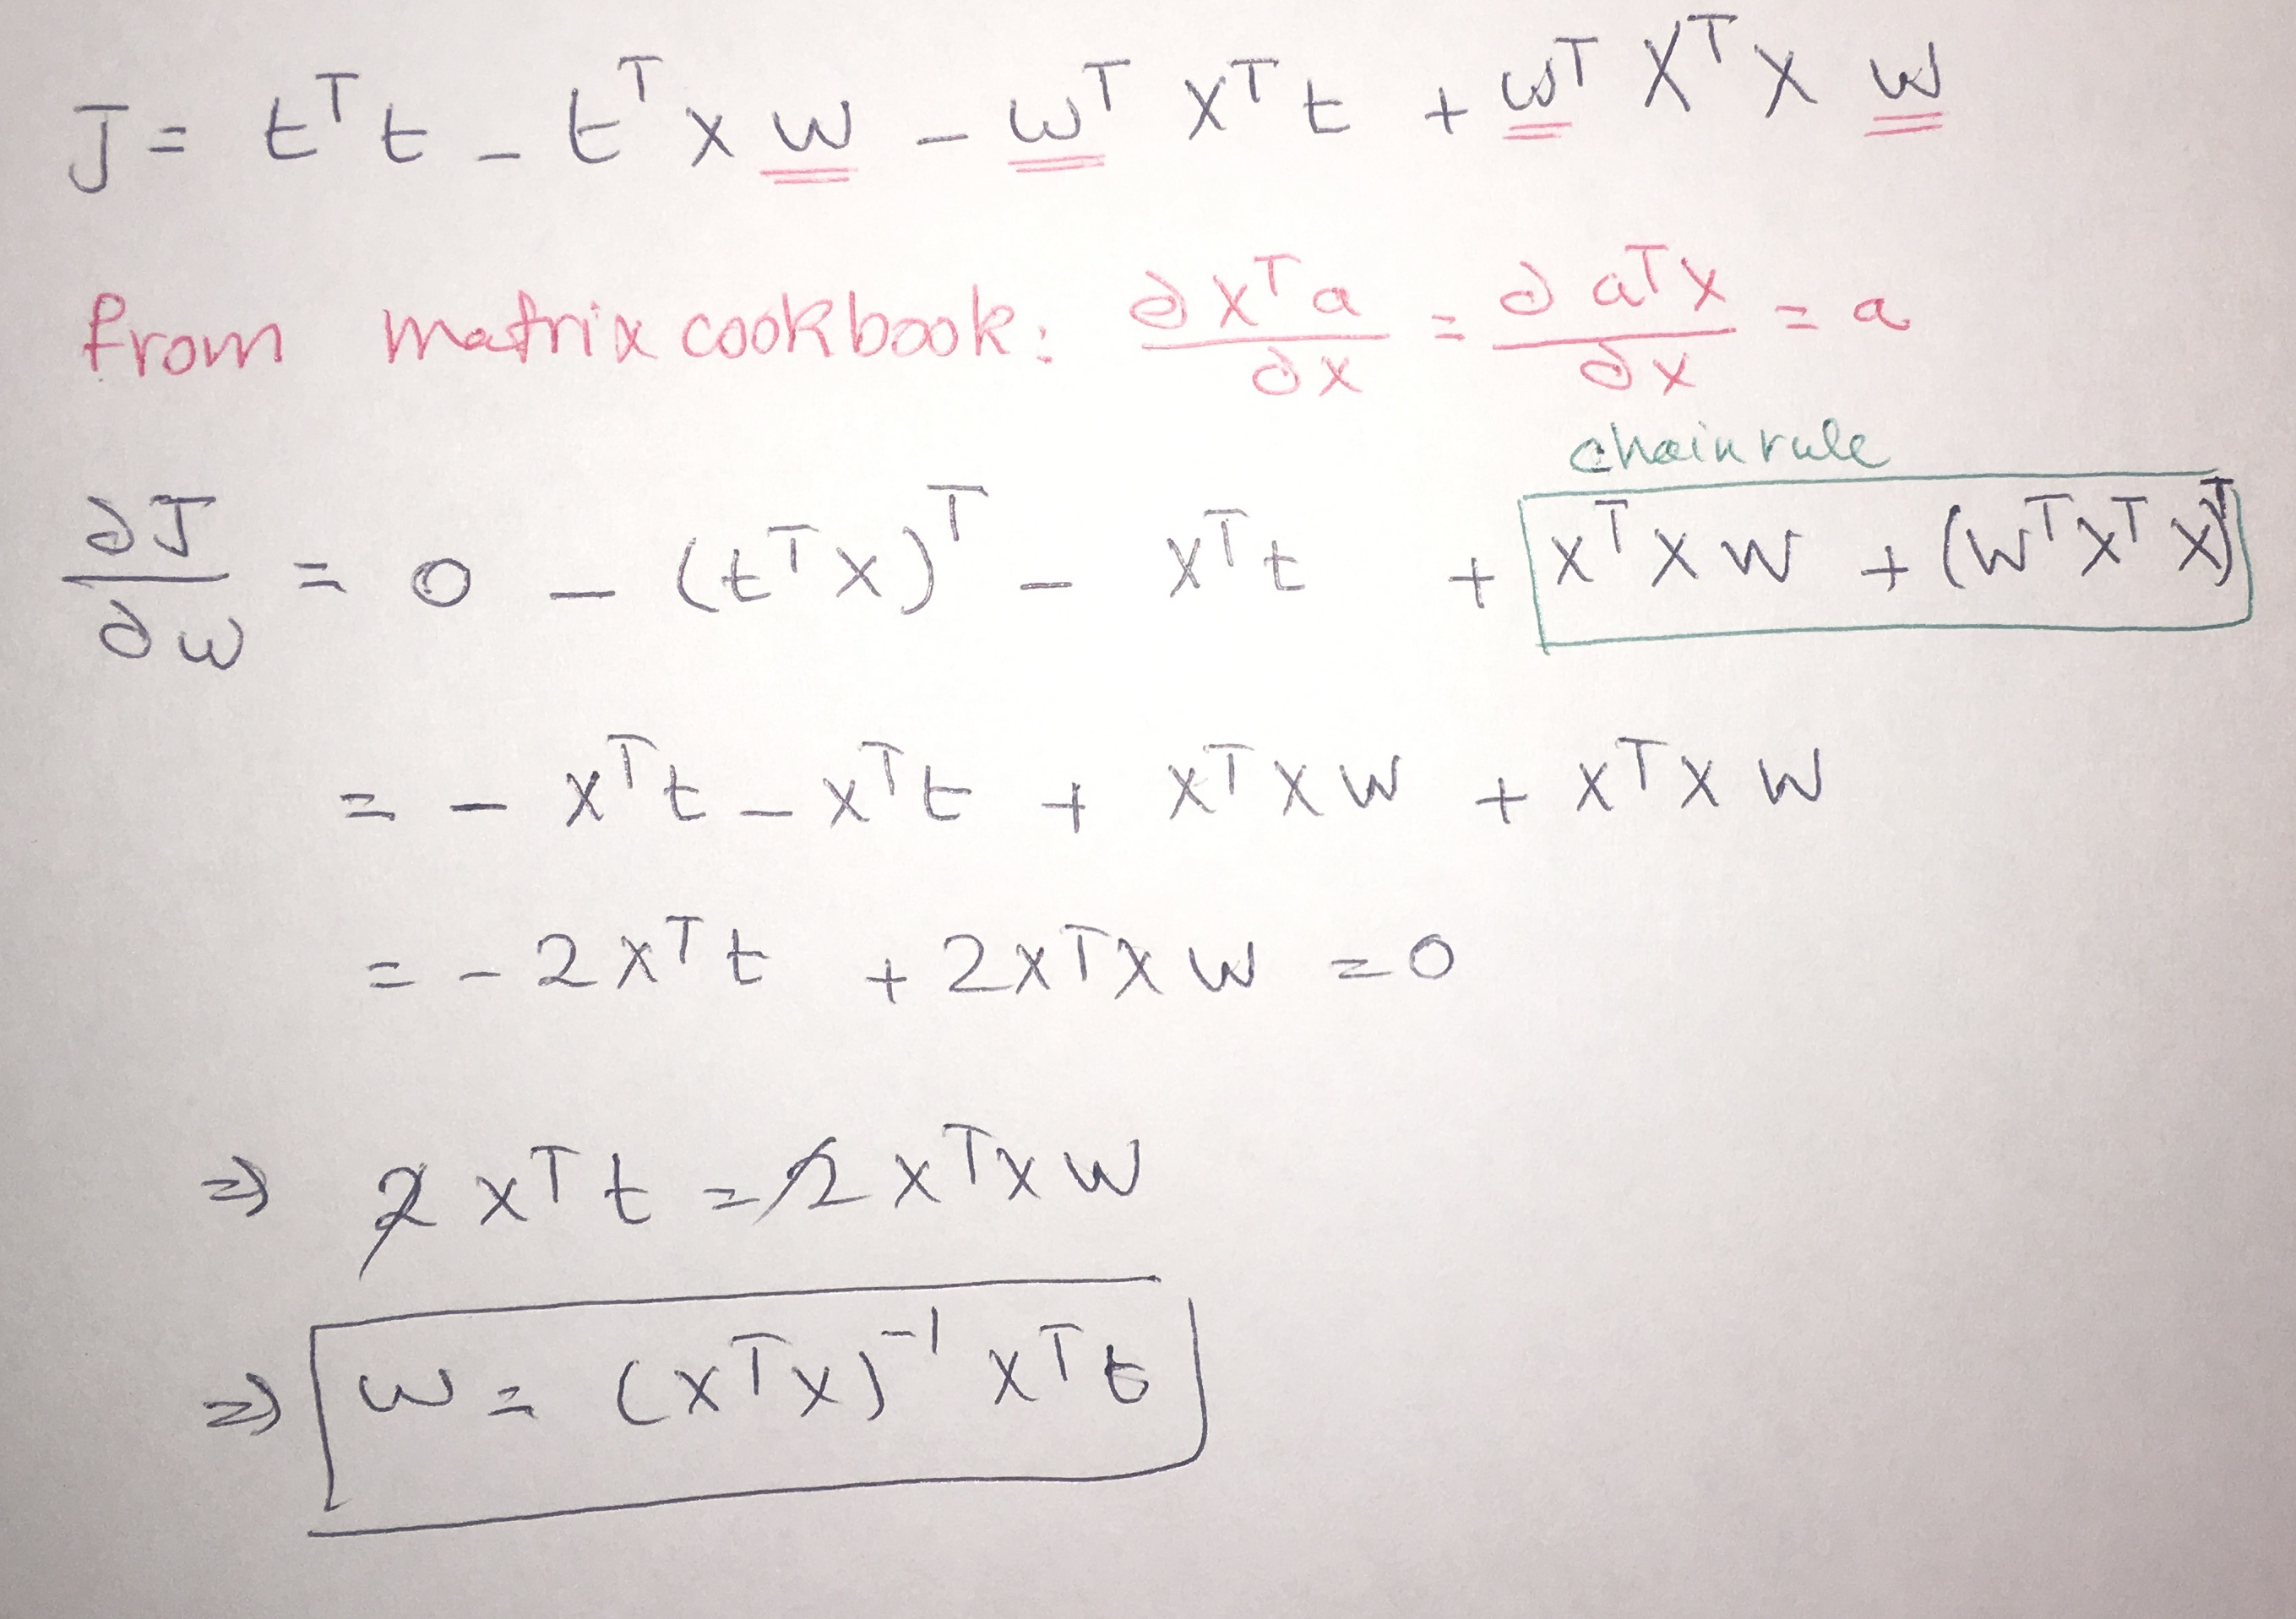 J = tᵀt - tᵀxw - wᵀxᵀt + wᵀxᵀxw
from matrix cookbook: ∂xᵀa/∂x = ∂aᵀx/∂x = a
chain rule
∂J/∂w = 0 - (tᵀx)ᵀ - xᵀt + xᵀxw + (wᵀxᵀx)ᵀ
= - xᵀt - xᵀt + xᵀxw + xᵀxw
= - 2xᵀt + 2xᵀxw = 0
⇒ 2xᵀt = 2xᵀxw
⇒ w = (xᵀx)⁻¹ xᵀt